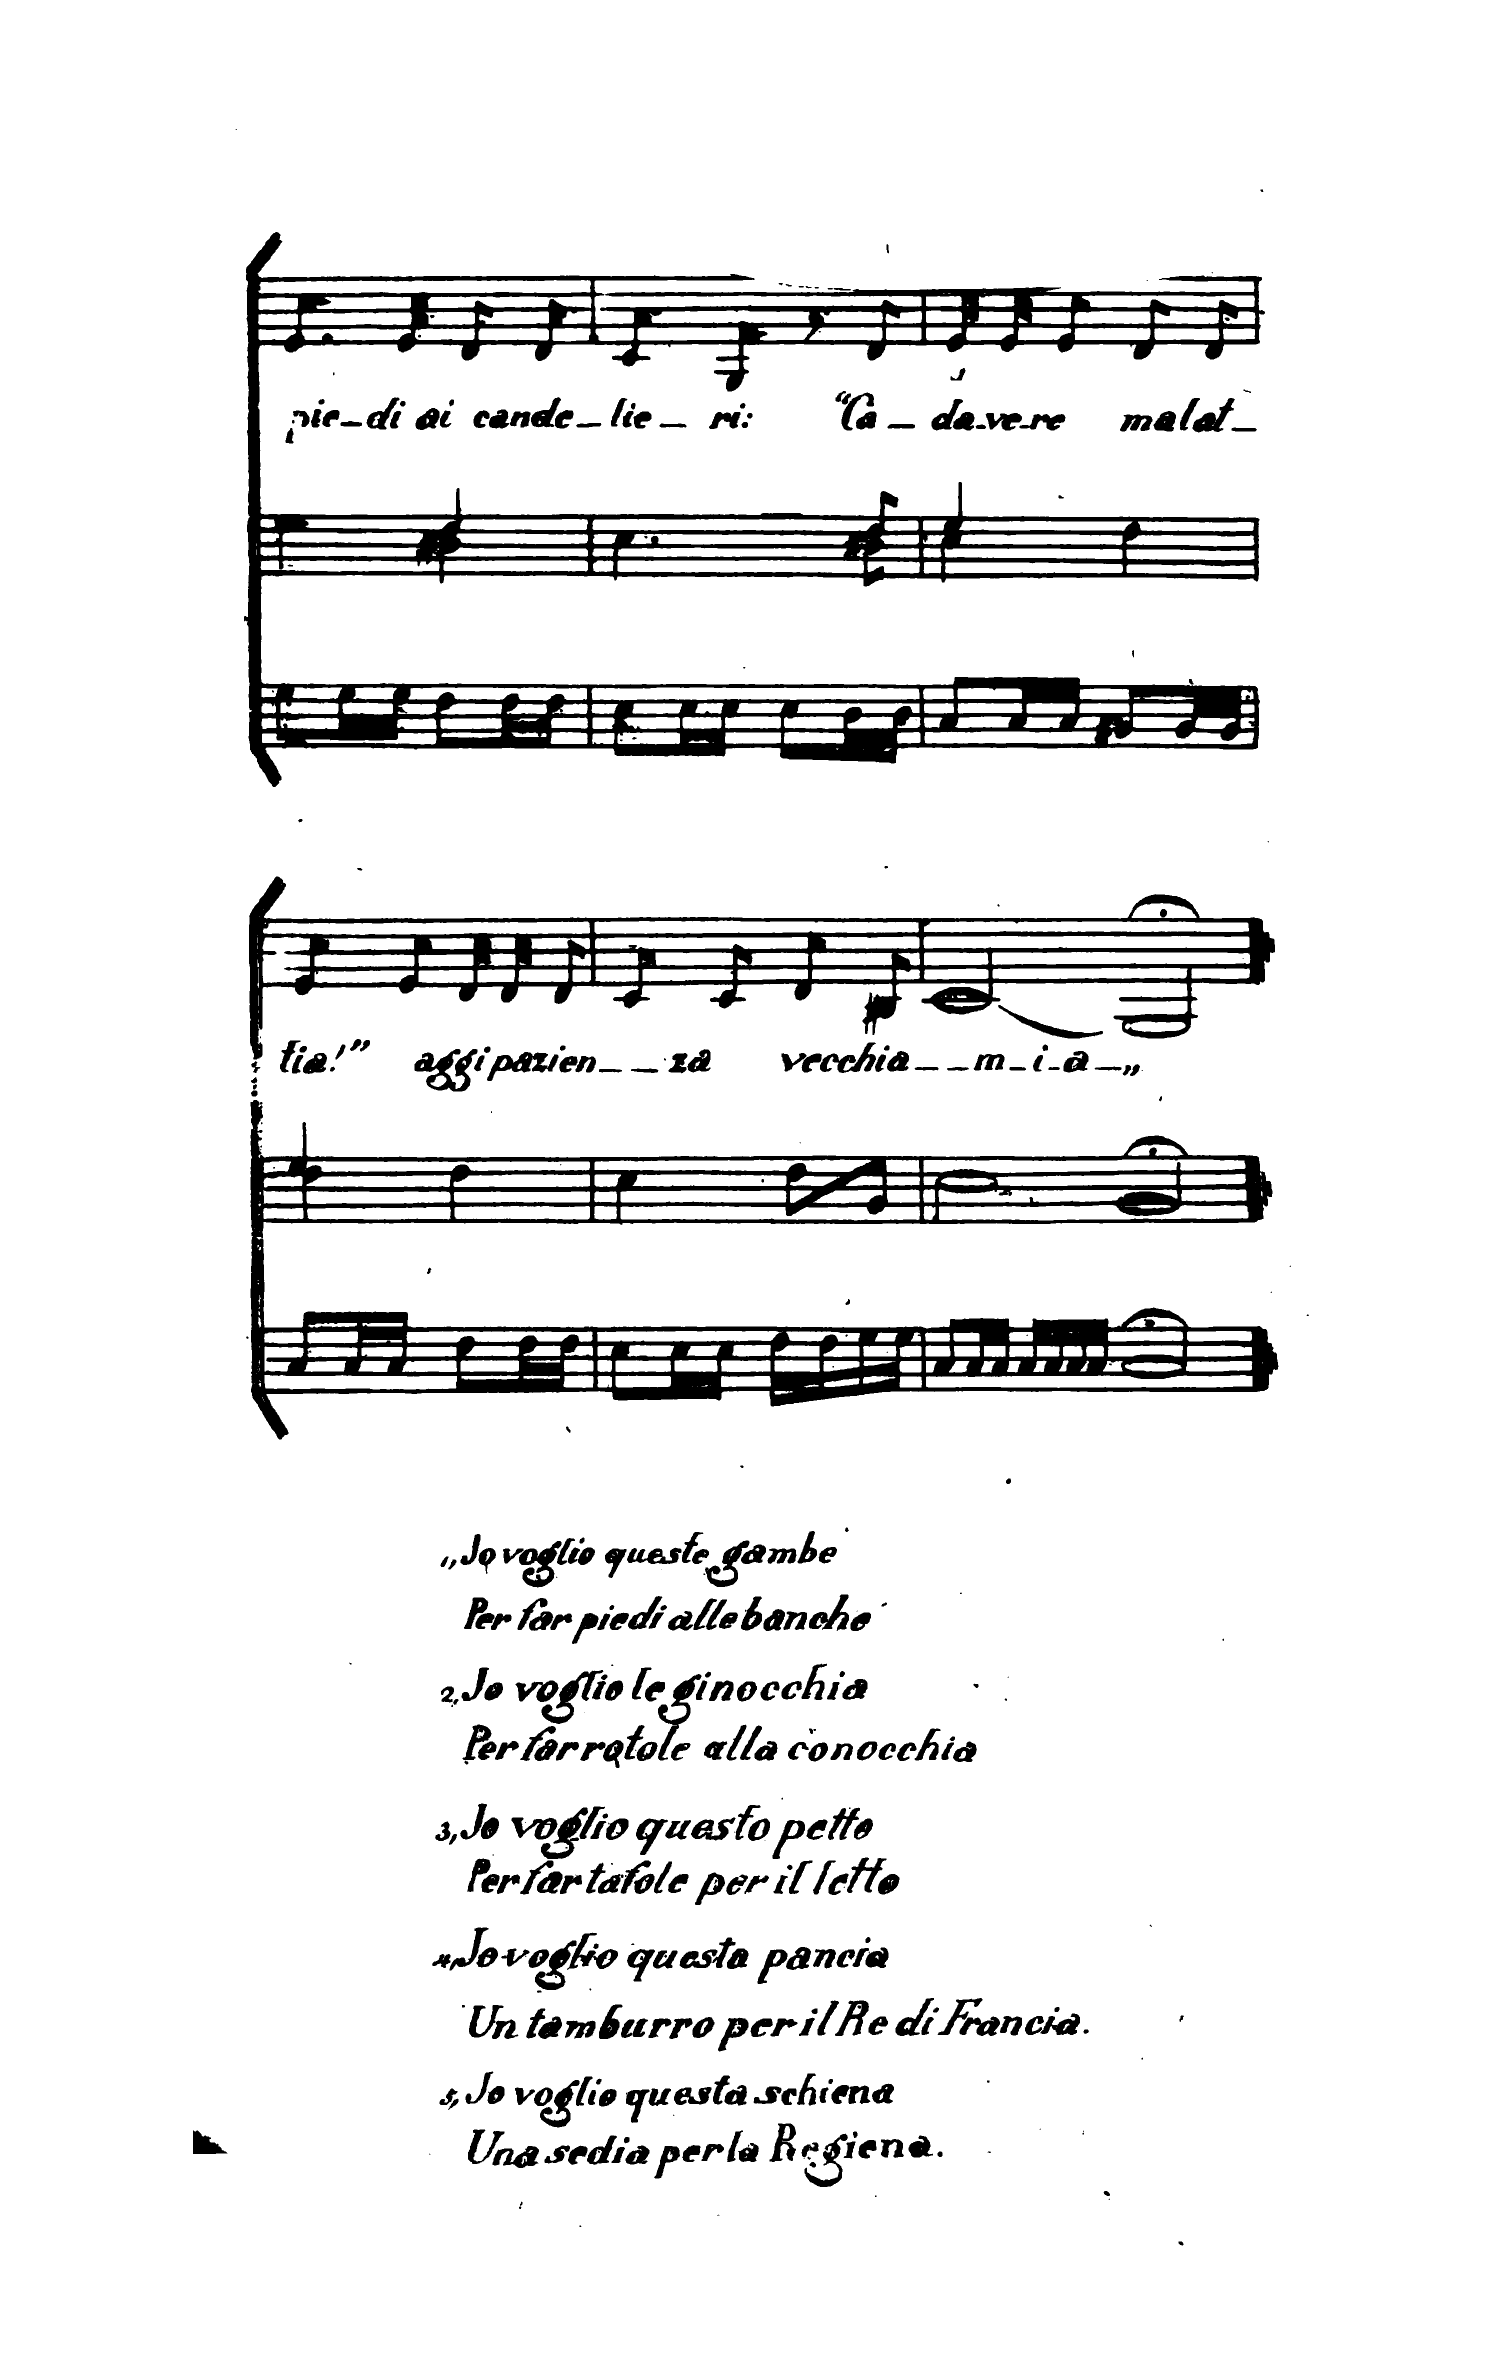 pie-di ai cande-lie-ri: "Ca-da-ve-re malat-
tia!" aggi pazien--za vecchia--m-i-a-„
1,, Jo voglio queste gambe
Per far piedi alle banche
2, Jo voglio le ginocchia
Per far rotole alla conocchia
3, Jo voglio questo petto
Per far tafole per il letto
4, Jo voglio questa pancia
Un tamburro per il Re di Francia.
5, Jo voglio questa schiena
Una sedia per la Regiena.